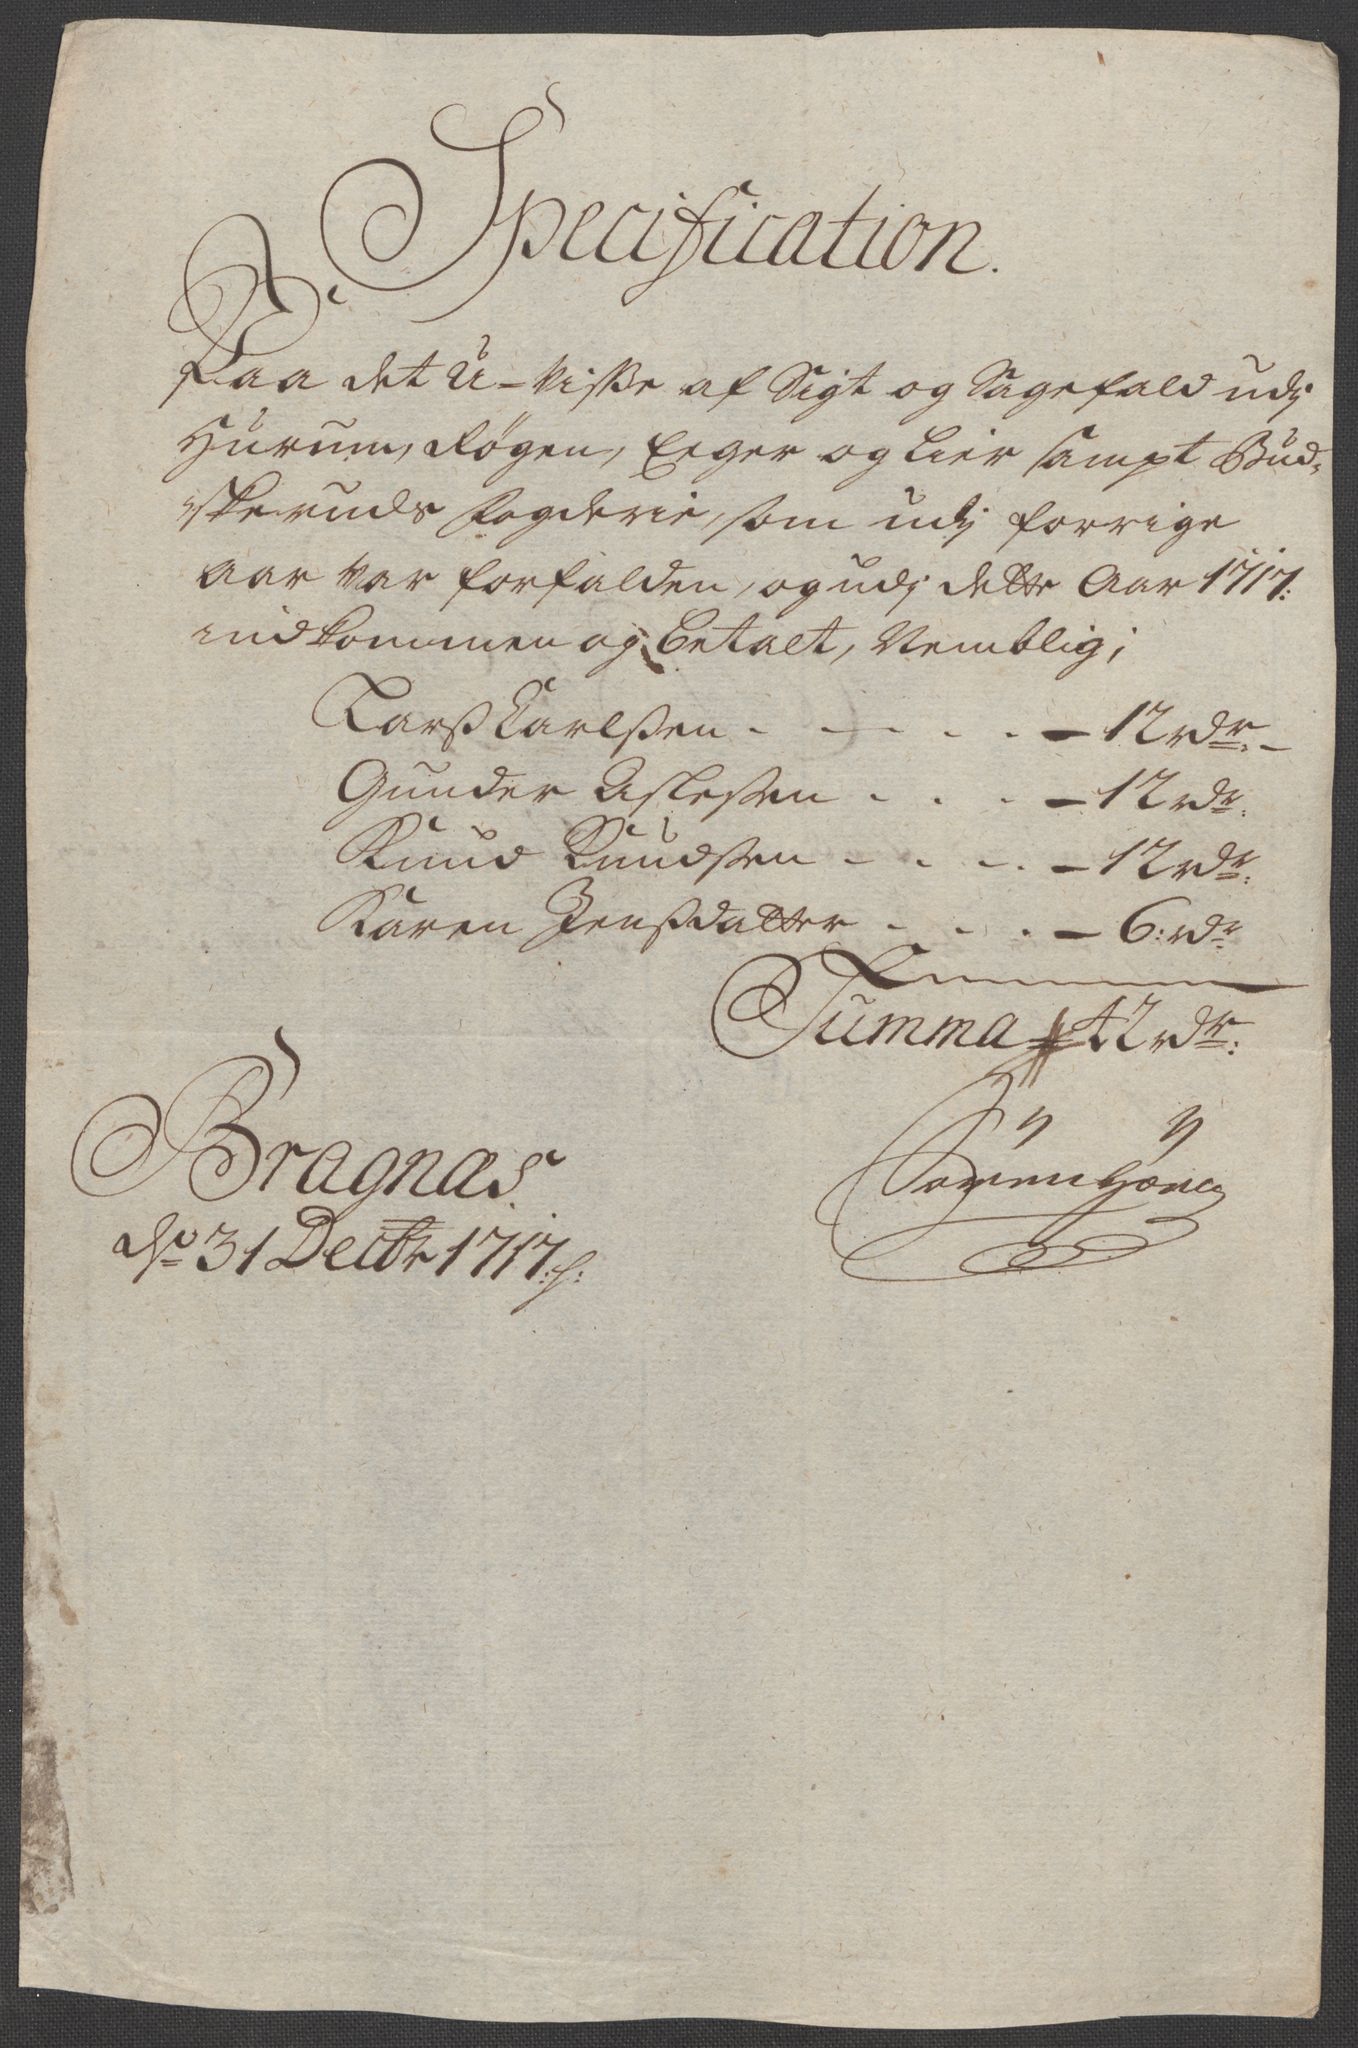 Specification.
Paa det U-visse af Sigt og Sagefald udj
Hurum, Røgen, Eeger og Lier sampt Bud-
skeruds fogderie, som udj forrige
Aar var forfalden, og udj dette Aar 1717:
indkommen og betalt, Nemblig;
Larss Carlssen . . . . . - 12 rdr. -
Gunder Aslessen . . . - 12 rdr.
Knud Knudssen . . . . - 12 rdr:
Karen Jenssdatter . . . - 6: rdr
Summa 42 rdr:
Bragnæs
ds 31 Decbr 1717:
Søfren